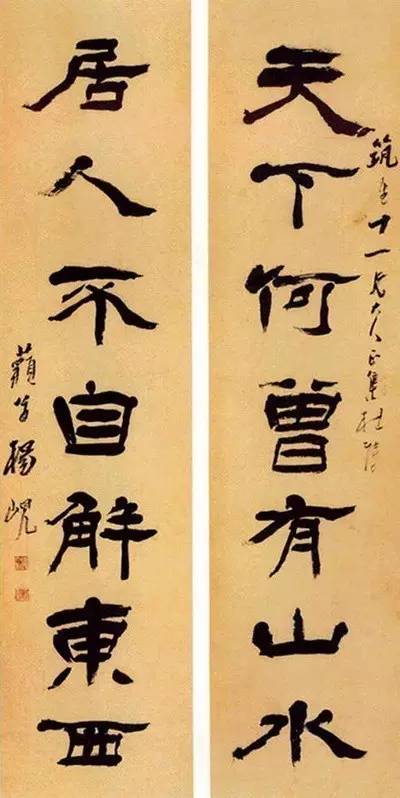 天下何曾有山水
筑十一兄大人正集杜陵
居人不自解東西
楊峴